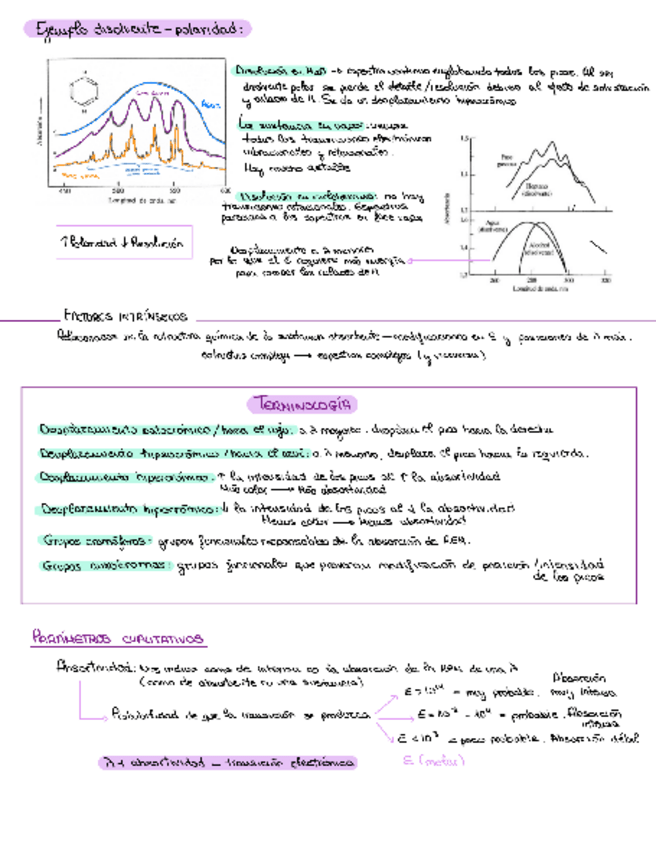 Ejemplo disolvente - polaridad:
Disolución en H₂O → espectro continuo englobando todos los picos. Al ser
disolvente polar se pierde el detalle/resolución debido al efecto de solvatación
y enlaces de H. Se da un desplazamiento hipsocrómico
Agua
La sustancia en vapor:
todas las transiciones electrónicas
vibracionales y rotacionales.
Hay muchos detalles
Absorbancia
Longitud de onda, nm
Disolución en ciclohexano: no hay
transiciones rotacionales. Espectros
parecidos a los espectros en fase vapor
↑Polaridad ↓ Resolución
Desplazamiento a λ menores
por lo que el E requiere más energía
para romper los enlaces de H
1,5
Fase gaseosa
Heptano (disolvente)
Absorbancia
Agua (disolvente)
Alcohol (disolvente)
Longitud de onda, nm
FACTORES INTRÍNSECOS
Relacionados con la estructura química de la sustancia absorbente - modificaciones en ε y posiciones de λ max.
estructuras complejas → espectros complejos (y viceversa)
TERMINOLOGÍA
Desplazamiento batocrómico/hacia el rojo: a λ mayores, desplaza el pico hacia la derecha
Desplazamiento hipsocrómico/hacia el azul: a λ menores, desplaza el pico hacia la izquierda.
Desplazamiento hipercrómico: ↑ la intensidad de los picos al ↑ la absortividad
Más color → Más absortividad
Desplazamiento hipocrómico: ↓ la intensidad de los picos al ↓ la absortividad
Menos color → Menos absortividad
Grupos cromóforos: grupos funcionales responsables de la absorción de R.E.M.
Grupos auxocromos: grupos funcionales que provocan modificación de posición/intensidad
de los picos
PARÁMETROS CUALITATIVOS
Absortividad: Nos indica como de intensa es la absorción de la REM de una λ
(como de absorbente es una sustancia)
Probabilidad de que la transición se produzca
ε > 10⁴ = muy probable. Absorción muy intensa
ε = 10³ - 10⁴ = probable. Absorción intensa
ε < 10³ = poco probable. Absorción débil
ε (molar)
λ + absortividad = transición electrónica